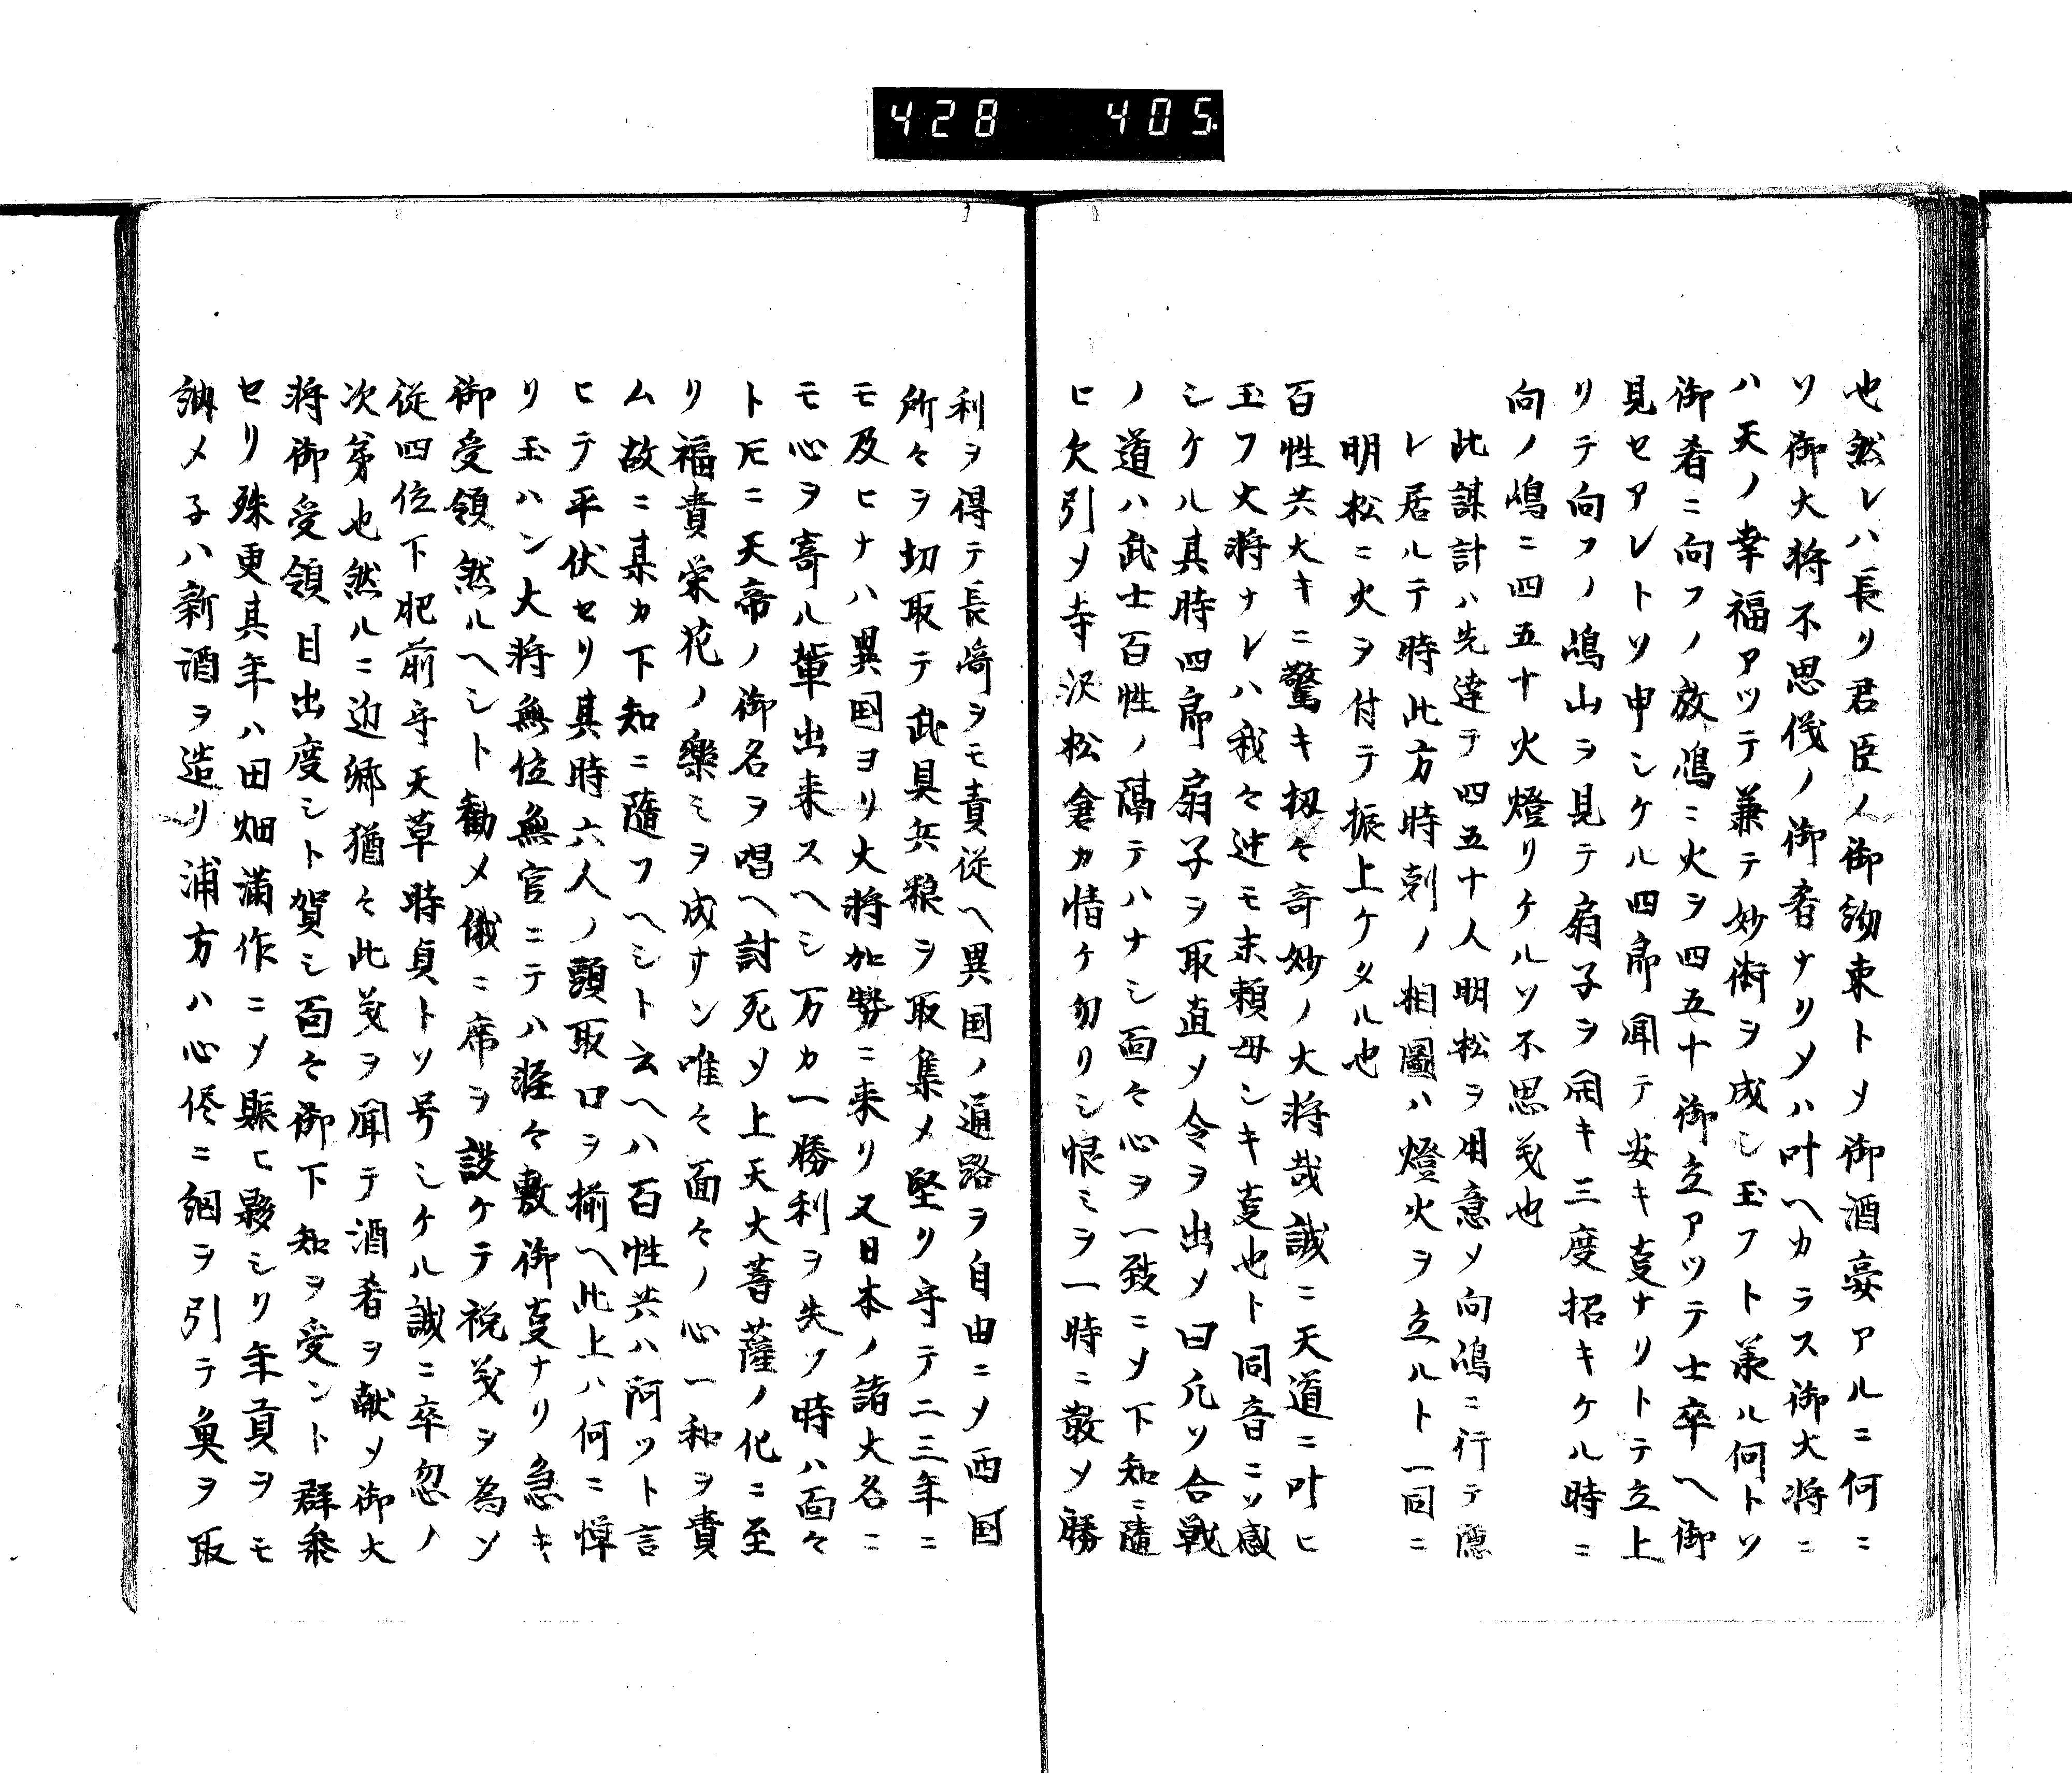 428 405
也然レハ長リ君臣ノ御約束トメ御酒宴アルニ何ニ
ソ御大将不思儀ノ御肴ナリメハ叶ヘカラス御大将ニ
ハ天ノ幸福アツテ兼テ妙術ヲ成シ玉フト承ル何トソ
御肴ニ向フノ放嶋ニ火ヲ四五十御立アツテ士卒ヘ御
見セアレトソ申シケル四郎聞テ安キ叓ナリトテ立上
リテ向フノ嶋山ヲ見テ扇子ヲ開キ三度招キケル時ニ
向ノ嶋ニ四五十火燈リケルソ不思義也
此謀計ハ先達テ四五十人明松ヲ用意メ向嶋ニ行テ隠
レ居ルテ時此方時剋ノ相圖ハ燈火ヲ立ルト一同ニ
明松ニ火ヲ付テ振上ケタル也
百性共大キニ驚キ扨々奇妙ノ大将哉誠ニ天道ニ叶ヒ
玉フ大将ナレハ我々迚モ末頼母シキ叓也ト同音ニソ感
シケル其時四郎扇子ヲ取直メ令ヲ出メ曰凢ソ合戦
ノ道ハ武士百性ノ隔テハナシ面々心ヲ一致ニメ下知ニ随
ヒ欠引メ寺沢松倉カ情ケ勿リシ恨ミヲ一時ニ散メ勝
利ヲ得テ長崎ヲモ責従ヘ異国ノ通路ヲ自由ニメ西国
所々ヲ切取テ武具兵粮ヲ取集メ堅リ守テ二三年ニ
モ及ヒナハ異国ヨリ大将加勢ニ来リ又日本ノ諸大名ニ
モ心ヲ寄ル輩出来スヘシ万カ一勝利ヲ失ソ時ハ面々
ト𪜈ニ天帝ノ御名ヲ唱ヘ討死メ上天大菩薩ノ化ニ至
リ福貴栄花ノ樂ミヲ成サン唯々面々ノ心一和ヲ貴
ム故ニ某カ下知ニ随フヘシト云ヘハ百性共ハ阿ツト言
ヒテ平伏セリ其時六人ノ頭取口ヲ揃ヘ此上ハ何ニ憚
リ玉ハン大将無位無官ニテハ軽々敷御叓ナリ急キ
御受領然ルヘシト勸メ俄ニ席ヲ設ケテ祝義ヲ為ソ
従四位下肥前守天草時貞トソ号シケル誠ニ卒忽ノ
次第也然ルニ辺郷猶々此義ヲ聞テ酒肴ヲ献メ御大
将御受領目出度シト賀シ面々御下知ヲ受ント群参
セリ殊更其年ハ田畑満作ニメ賑ヒ夥シリ年貢ヲモ
納メ子ハ新酒ヲ造リ浦方ハ心侭ニ網ヲ引テ魚ヲ取